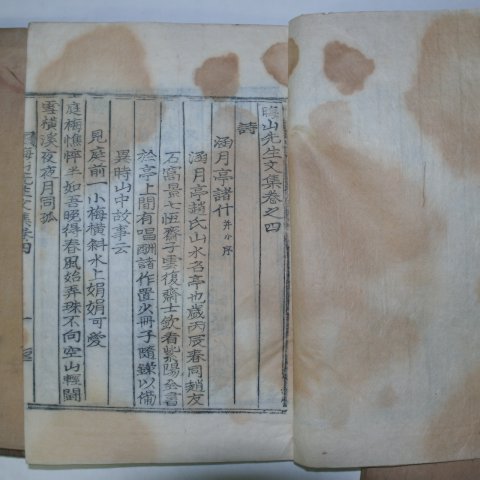 晦山先生文集卷之四
詩
涵月亭諸什 并小序
涵月亭趙氏山水名亭也歲丙辰春同趙友
石窩景七恆齋子雲復齋士欽看紫陽全書
於亭上間有唱酬諸作置少冊子隨錄以備
異時山中故事云
見庭前一小梅橫斜水上娟娟可愛
庭梅憔悴半如吾晩得春風始弄珠不向空山輕鬪
雪橫溪夜夜月同孤